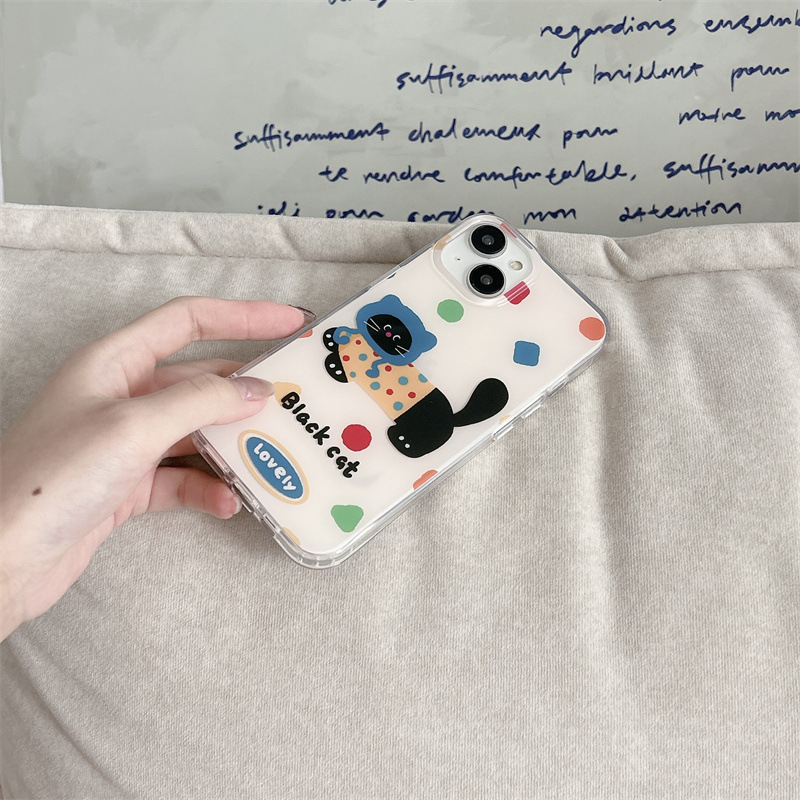 regardions ensemb
suffisamment brillant pour
suffisamment chaleureux pour
notre mo
te rendre comfortable, suffisamm
joli pour garder mon attention
Black cat
Lovely